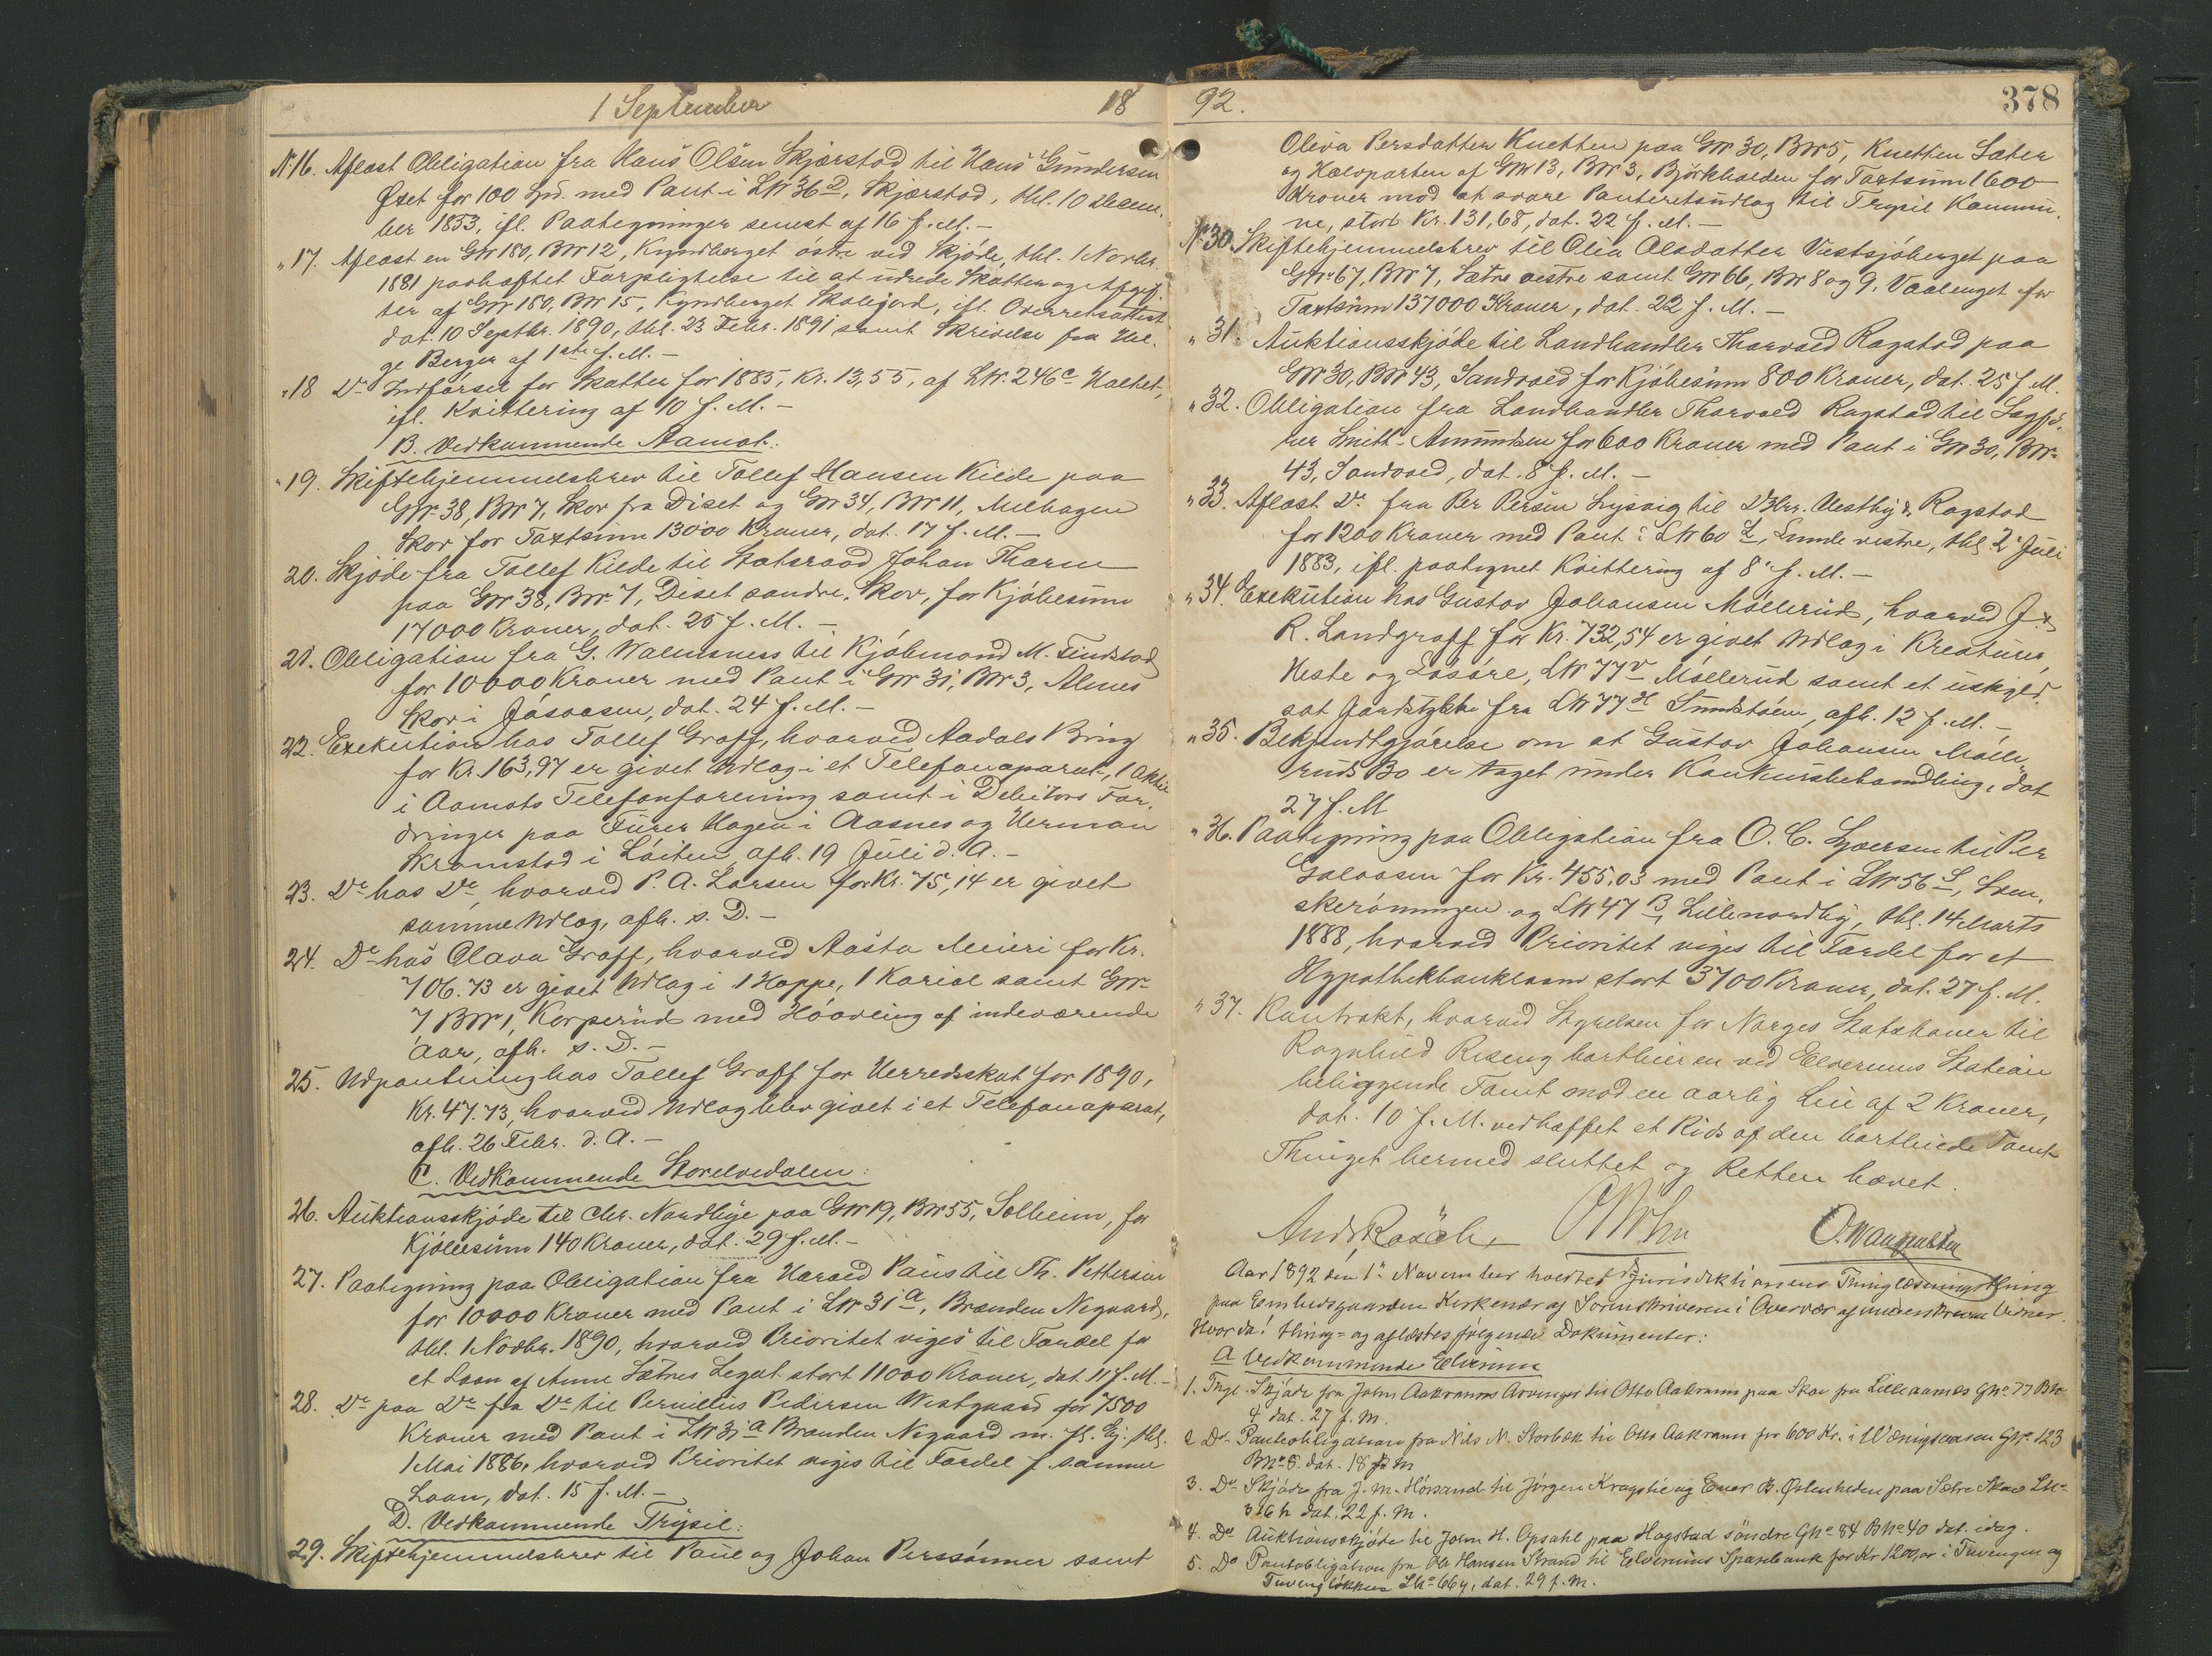 1 September 18
N: 16. Aflæst Obligation fra Hans Olsen Skjærstad til Hans Gundersen
Øset for 100 Spd. med Pant i LNr 36 D, Skjærstad, thl. 10 Decem-
ber 1853, ifl. Paategninger senest af 16 f. M. —
" 17. Aflæst en GNr 180, BNr 12, Kynndberget østre ved Skjøde, thl. 1 Novbr.
1881 paaheftet Forpligtelse til at udrede Skatter og Afgif-
ter af GNr 180, BNr 15, Kynndberget Skolejord, ifl. Overretsattest
dat. 10 Septbr. 1890, thl. 23 Febr. 1891 samt Skrivelse fra Hel-
ge Berger af 1ste f. M. —
" 18 Do Indførsel for Skatter for 1885, Kr. 13,55, af LNr. 246 c
ifl. Kvittering af 10 f. M. —
B. Vedkommende Aamot:
" 19. Skiftehjemmelsbrev til Tollef Hansen Kilde paa
GNr. 38, BNr 7, Skov fra Diset og GNr 34, BNr 11, Melhagen
Skov for Taxtsum 13000 Kroner, dat. 17 f. M. —
20. Skjøde fra Tollef Kilde til Statsraad Johan Thorne
paa GNr 38, BNr. 7, Diset søndre, Skov, for Kjøbesum
17000 Kroner, dat. 25 f. M. —
21. Obligation fra G. Walmsness til Kjøbmand M. Findstad
for 10000 Kroner med Pant i GNr 31, BNr 3, Alme
Skov i Jøsaasen, dat. 24 f. M. —
22. Exekution hos Tollef Graff, hvorved Aadals Brug
for Kr. 163,97 er givet Udlæg i et Telefonaparat, 1 Aktie
i Aamots Telefonforening samt i Debitors For-
dringer paa Furer Hagen i Aasnes og Herman
Skramstad i Løiten, afh. 19 Juli d. A. —
23. Do hos Do, hvorved P. A. Larsen for Kr. 75,14 er givet
samme Udlæg, afh. s. D. —
24. Do hos Olava Graff, hvorved Aasta Meieri for Kr.
706.73 er givet Udlæg i 1 Hoppe, 1 Kariol samt GNr
7 BNr 1, Korperud med Høavling af indeværende
Aar, afh. s. D. —
25. Udpantning hos Tollef Graff for Herredsskat for 1890,
Kr. 47.73, hvorved Udlæg blev givet i et Telefonaparat,
afh. 26 Febr. d. A. —
C. Vedkommende Storelvedalen:
26. Auktionsskjøde til Chr. Nordbye paa GNr 19, BNr 55, Solheim, for
Kjøbesum 140 Kroner, dat. 29 f. M. —
27. Paategning paa Obligation fra Harald Paus til Th. Pettersen
for 10000 Kroner med Pant i LNr 31 a, Brænden Negaard,
thl. 1 Novbr. 1890, hvorved Prioritet viges til Fordel for
et Laan af Anne Sætres Legat stort 11000 Kroner, dat. 11 f. M. —
28. Do paa Do fra Do til Pernillius Pedersen Westgaard for 7500
Kroner med Pant i LNr 31 a Brænden Negaard m. fl. Ej. thl.
1 Mai 1886, hvorved Prioritet viges til Fordel f. samme
Laan, dat. 15 f. M. —
D. Vedkommende Trysil:
29. Skiftehjemmelsbrev til Paul og Johan Perssønner samt
92. 378
Oliva Persdatter Knetten paa GNr 30, BNr 5, Knetten Sæter
og Halvparten af GNr 13, BNr 3, Björkholden for Taxtsum 1600
Kroner mod at svare Panteretsudlæg til Trysil Kommu-
ne, stort Kr. 131,68, dat. 22 f. M. —
No 30. Skiftehjemmelsbrev til Olia Olsdatter Vestsjøberget paa
GNr. 67, BNr 7, Sætre vestre samt GNr 66, BNr 8 og 9, Vaalenget for
Taxtsum 137000 Kroner, dat. 22 f. M. —
" 31. Auktionsskjøde til Landhandler Thorvald Rogstad paa
GNr 30, BNr 43, Sandvold for Kjøbesum 800 Kroner, dat. 25 f. M.
" 32. Obligation fra Landhandler Thorvald Rogstad til Sagfø-
rer Smith-Amundsen for 600 Kroner med Pant i GNr 30, BNr
43, Sandvold, dat. 8 f. M. —
" 33. Aflæst Do fra Per Persen Lysvig til DHrr. Vestby & Rogstad
for 1200 Kroner med Pant i LNr 60, Lunde vestre, thl. 2 Juli
1883, ifl. paategnet Kvittering af 8 f. M. —
" 34. Exekution hos Gustav Johansen Møllerud, hvorved
R. Landgraff for Kr. 732,54 er givet Udlæg i Kreaturer,
Heste og Løsøre, LNr 77 v Møllerud samt et uskyld-
sat Jordstykke fra LNr 77 Sundstøen, afh. 12 f. M. —
" 35. Bekjendtgjørelse om at Gustav Johansen Mølle-
ruds Bo er taget under Konkursbehandling, dat
27 f. M
" 36. Paategning paa Obligation fra O. C. til Per
Galaasen for Kr. 455.03 med Pant i LNr 56,
og LNr 47 B, Lillenordby, thl. 14 Marts
1888, hvorved Prioritet viges til Fordel for et
Hypothekbanklaan stort 3700 Kroner, dat. 27 f. M.
" 37. Kontrakt, hvorved Styrelsen for Norges Statsbaner til
Ragnhild Riseng bortleier en ved Elverums Station
beliggende Tomt mod en aarlig Leie af 2 Kroner,
dat. 10 f. M. vedhæftet et Rids af den bortleiede Tomt
Thinget hermed sluttet og Retten hævet.
O. Wangensten
Aar 1892 den 1ste November holdtes Jurisdiktionens Thinglæsningsthing
paa Embedsgaarden Kirkenær af Sorenskriveren i Overvær af underskrevne Vidner.
Hvor da! thing= og aflæstes følgende Dokumenter:
A Vedkommende Elverum
1. Thgl. Skjøde fra John Aakranns Arvinger til Otto Aakrann paa Skov fra Lilleaamaes GNo. 77 BNo
4 dat. 27 f. M.
2 Do Panteobligation fra Nils N. Storbæk til Otto Aakrann for 600 Kr. i GNo. 123
BNo 8. dat. 18 f. M
3. Do Skjøde fra J. M. Hörsand til Jörgen Kragslie og Ener B. Östenheden paa Sætre Skov LNo
316 h dat. 22 f. M.
4. Do Auktionsskjøde til John H. Opsahl paa Hagstad söndre GNo 84 BNo 40 dat. idag.
5. Do Panteobligation fra Ole Hansen Strand til Elverums Sparebank for Kr 1200,00 i Tuvengen og
Tuvengløkken LNo 664, dat. 29 f. M.